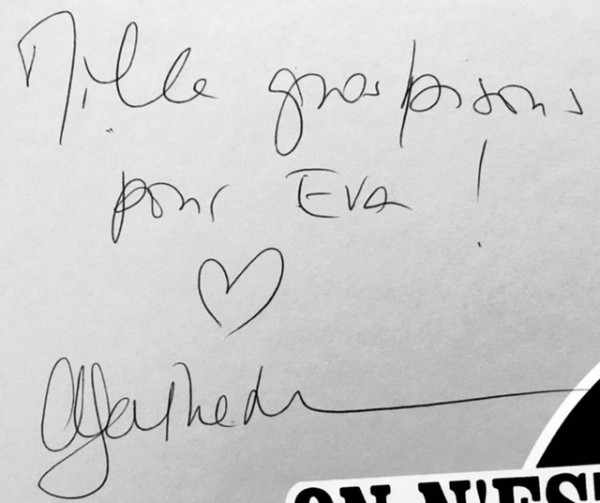 Mille gros bisous
pour EVA !
ON N'ES